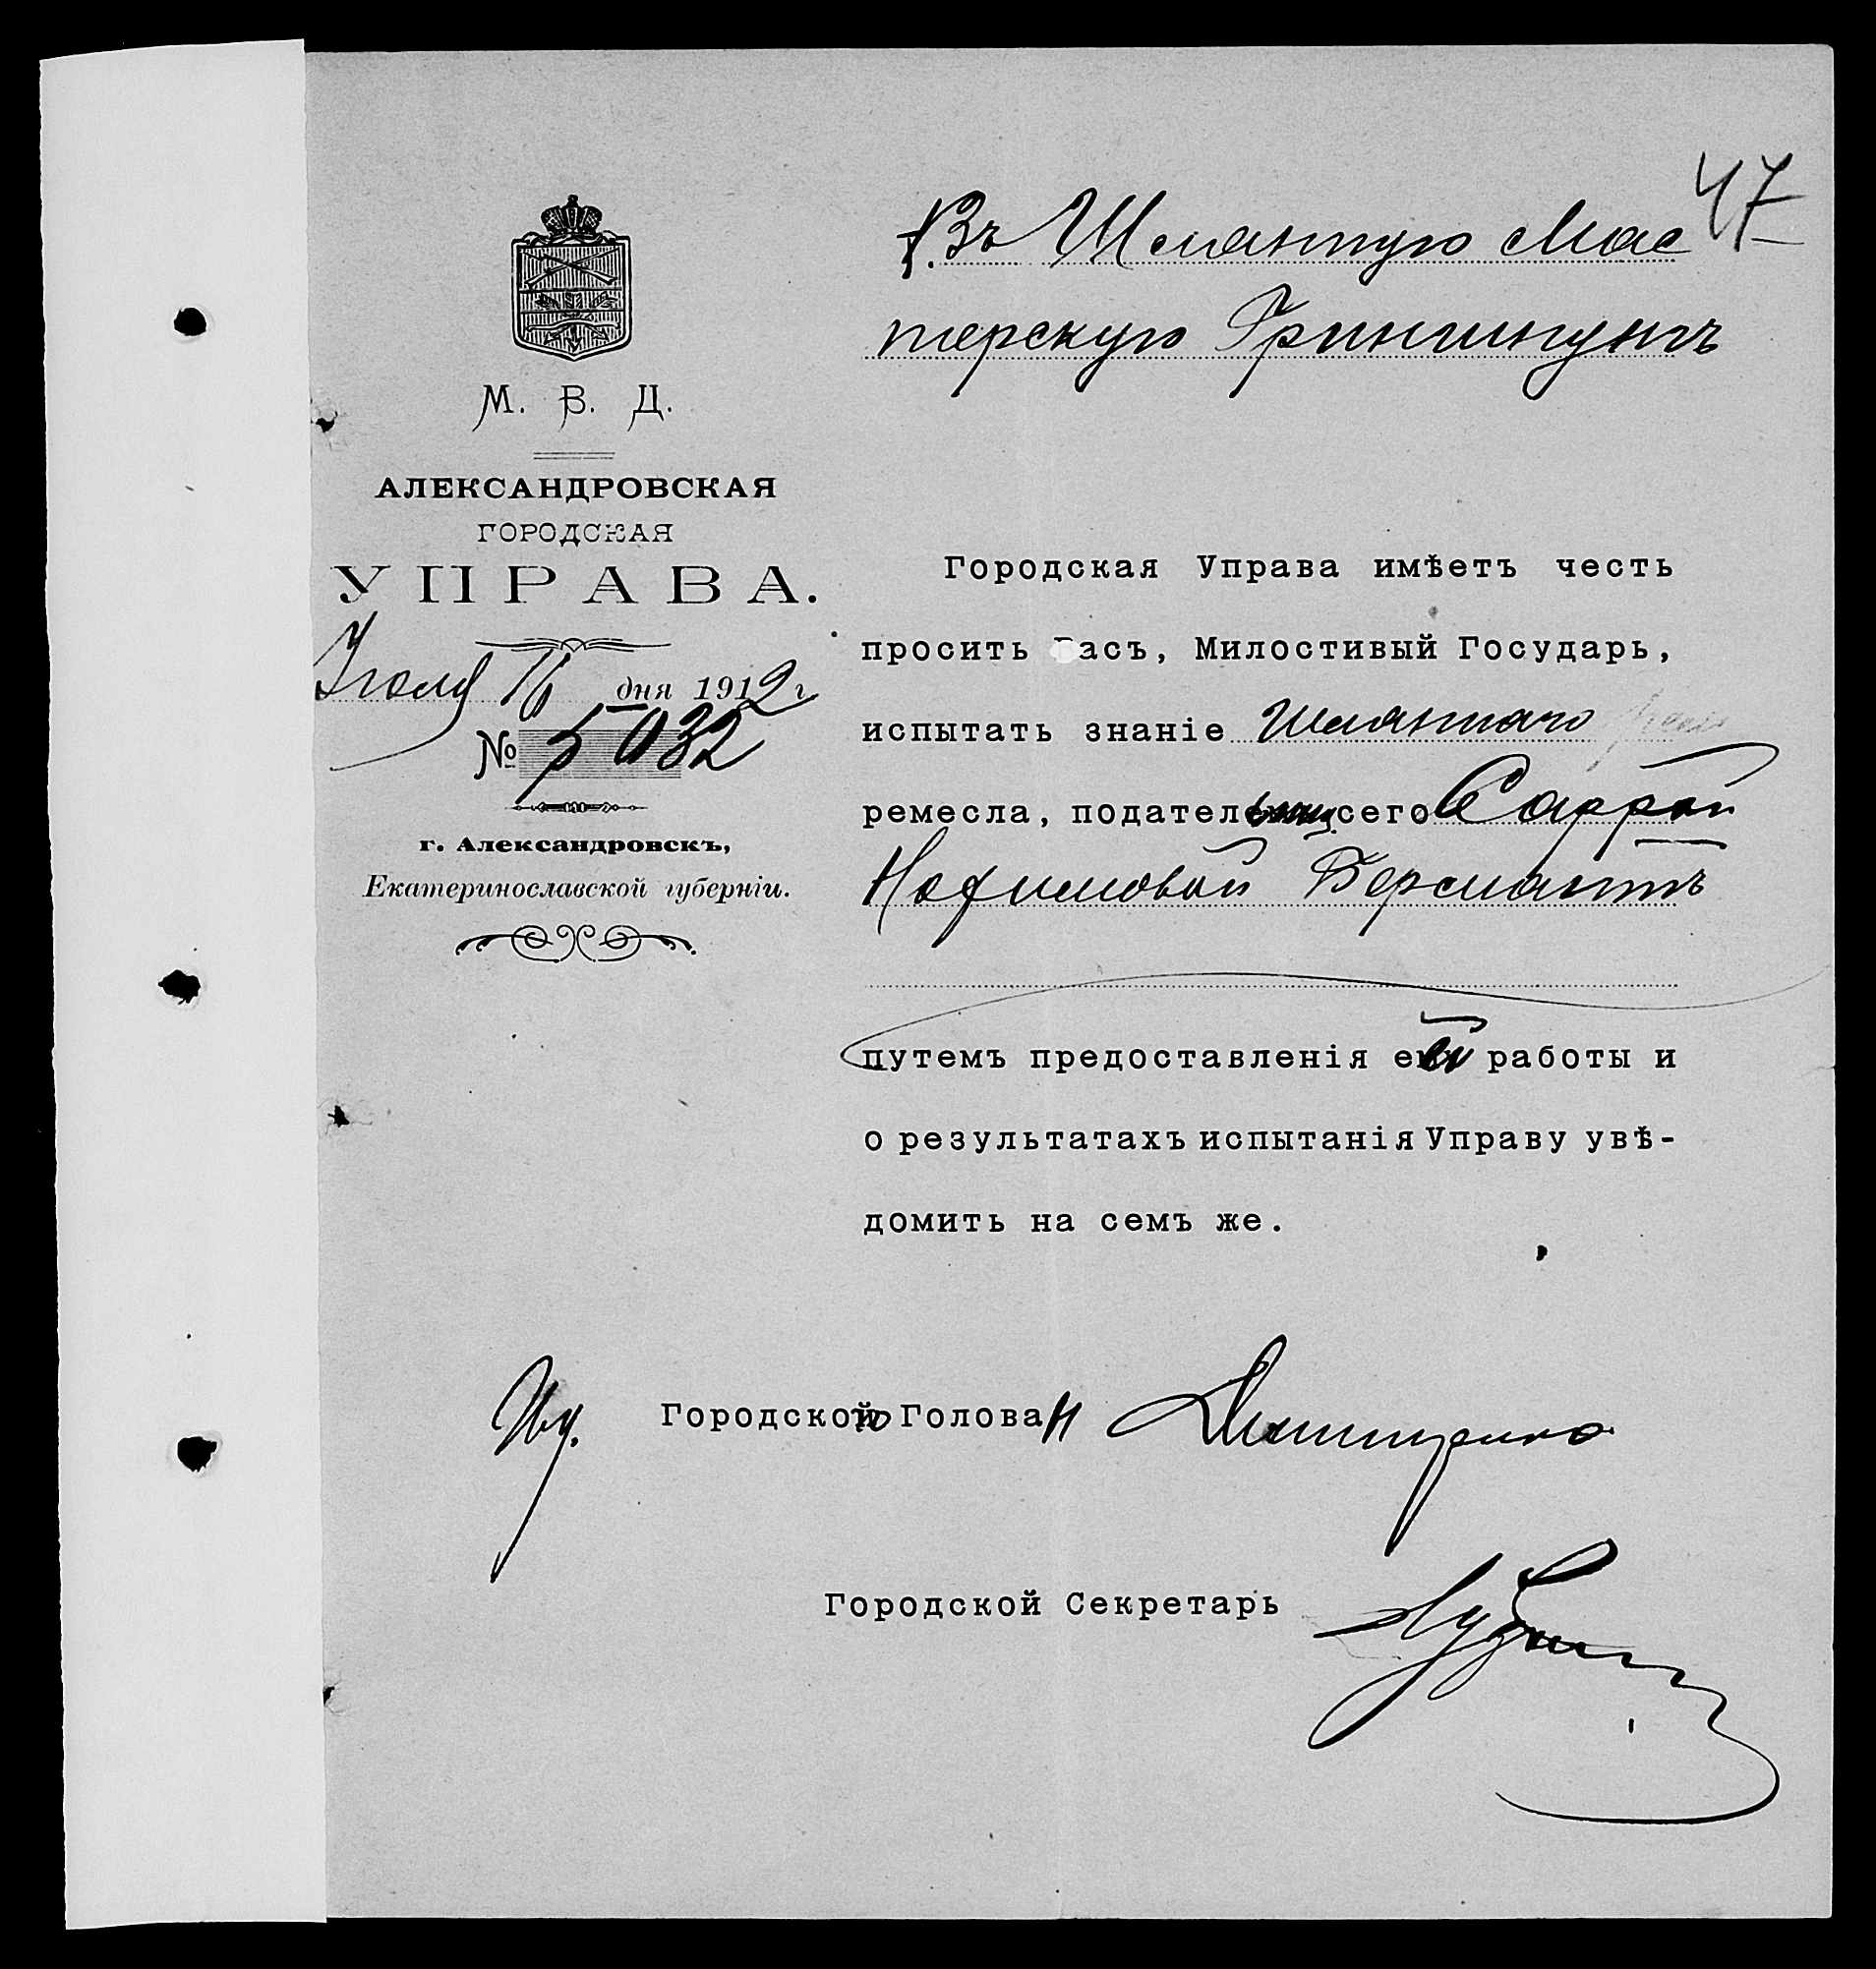 47
Въ Шляпную Мас
терскую Грингунтъ
М. В. Д.
АЛЕКСАНДРОВСКАЯ
ГОРОДСКАЯ
УПРАВА.
Іюля 16 дня 1912 г.
№ 5032
г. Александровскъ,
Екатеринославской губерніи.
Городская Управа имѣетъ честь
просить Васъ, Милостивый Государь,
испытать знаніе Шляпнаго
ремесла, подательницы сего Саррой
Нохимовой Берманъ
путемъ предоставленія ей работы и
о результатахъ испытанія Управу увѣ-
домить на семъ же.
Городского Головы
Городской Секретарь